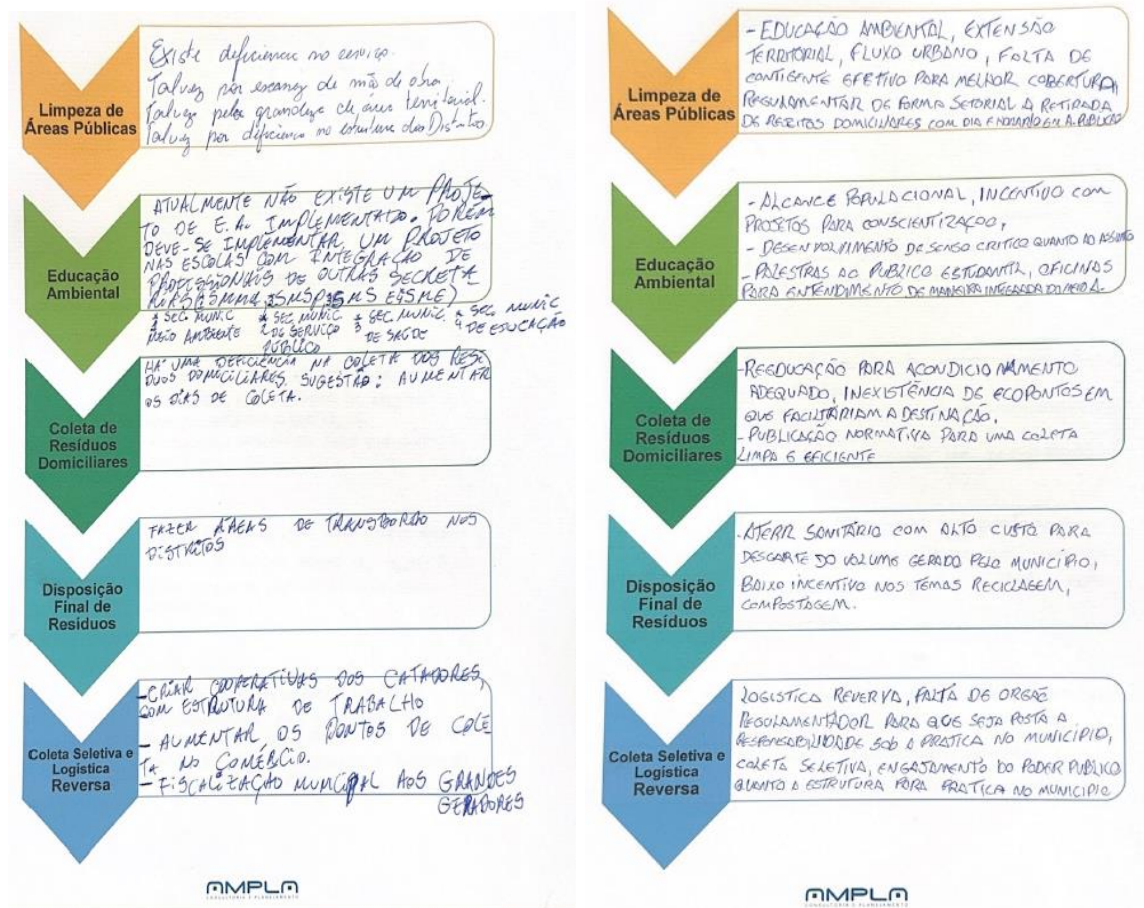 Limpeza de
Áreas Públicas
Existe deficiencia no serviço.
Talvez por escassez de mão de obra.
Talvez pela grandeza de área territorial.
Talvez por deficiencia na estrutura dos Distritos
Educação
Ambiental
ATUALMENTE NÃO EXISTE UM PROJE-
TO DE E.A. IMPLEMENTADO. PORÉM
DEVE-SE IMPLEMENTAR UM PROJETO
NAS ESCOLAS COM INTEGRAÇÃO DE
PROFISSIONAIS DE OUTRAS SECRETA
1 SEC. MUNIC 2 SEC. MUNIC 3 SEC MUNIC. 4 SEC. MUNIC
MEIO AMBIENTE DE SERVIÇO DE SAÚDE DE EDUCAÇÃO
PÚBLICO
Coleta de
Resíduos
Domiciliares
HÁ UMA DEFICIÊNCIA NA COLETA DOS RESÍ
DUOS DOMICILIARES. SUGESTÃO: AUMENTAR
OS DIAS DE COLETA.
Disposição
Final de
Resíduos
FAZER ÁREAS DE TRANSBORDO NOS
DISTRITOS
Coleta Seletiva e
Logística
Reversa
- CRIAR COOPERATIVAS DOS CATADORES,
COM ESTRUTURA DE TRABALHO
- AUMENTAR OS PONTOS DE COLE
TA NO COMÉRCIO.
- FISCALIZAÇÃO MUNICIPAL AOS GRANDES
GERADORES
AMPLA
CONSULTORIA E PLANEJAMENTO
Limpeza de
Áreas Públicas
- EDUCAÇÃO AMBIENTAL, EXTENSÃO
TERRITORIAL, FLUXO URBANO, FALTA DE
CONTIGENTE EFETIVO PARA MELHOR COBERTURA,
REGULAMENTAR DE FORMA SETORIAL A RETIRADA
DE REJEITOS DOMICILIARES COM DIA E HORARIO EM A. PUBLICAS
Educação
Ambiental
- ALCANCE POPULACIONAL, INCENTIVO COM
PROJETOS PARA CONSCIENTIZAÇÃO,
- DESENVOLVIMENTO DE SENSO CRITICO QUANTO AO ASSUNTO
- PALESTRAS AO PUBLICO ESTUDANTIL, OFICINAS
PARA ENTENDIMENTO DE MANEIRA INTEGRADA DO MEIO A.
Coleta de
Resíduos
Domiciliares
- REEDUCAÇÃO PARA ACONDICIONAMENTO
ADEQUADO, INEXISTÊNCIA DE ECOPONTOS EM
QUE FACILITARIAM A DESTINAÇÃO,
- PUBLICAÇÃO NORMATIVA PARA UMA COLETA
LIMPA E EFICIENTE
Disposição
Final de
Resíduos
- ATERR SANITÁRIO COM ALTO CUSTO PARA
DESCARTE DO VOLUME GERADO PELO MUNICÍPIO,
BAIXO INCENTIVO NOS TEMAS RECICLAGEM,
COMPOSTAGEM.
Coleta Seletiva e
Logística
Reversa
LOGISTICA REVERVA, FALTA DE ORGÃE
REGULAMENTADOR PARA QUE SEJA POSTA A
RESPONSABILIDADE SOB A PRATICA NO MUNICÍPIO,
COLETA SELETIVA, ENGAJAMENTO DO PODER PUBLICO
QUANTO A ESTRUTURA PARA PRATICA NO MUNICIPIO
AMPLA
CONSULTORIA E PLANEJAMENTO